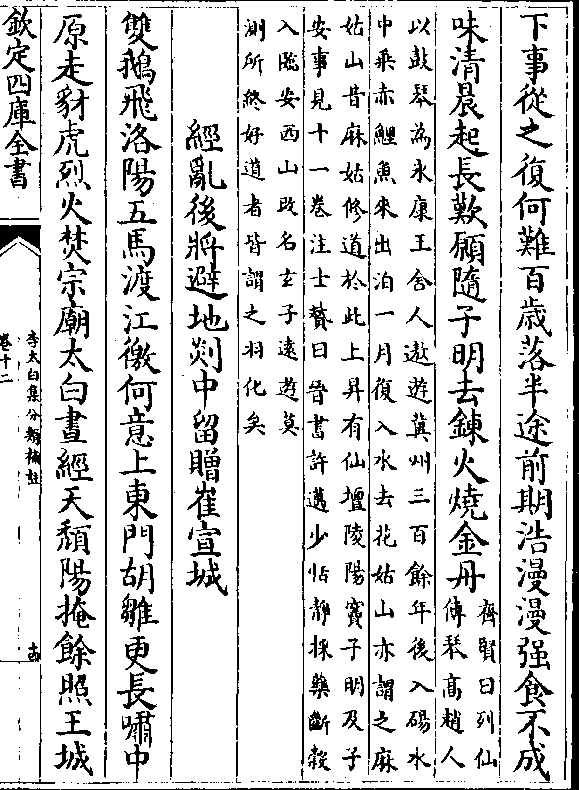 下事從之復何難百歳落半途前期浩漫漫强食不成
味清晨起長歎願隨子明去鍊火燒金丹
齊賢曰列仙
傳琴高趙人
以鼓琴為永康王舍人遨遊冀州三百餘年後入碭水
中乘赤鯉魚來出泊一月復入水去花姑山亦謂之麻
姑山昔麻姑修道於此上昇有仙壇陵陽竇子明及子
安事見十一卷注士贇曰晉書許邁少恬靜採藥斷糓
入臨安西山改名玄子遠遊莫
測所終好道者皆謂之羽化矣
經亂後將避地剡中留贈崔宣城
雙鵝飛洛陽五馬渡江徼何意上東門胡雛更長嘯中
原走豺虎烈火焚宗廟太白晝經天頽陽掩餘照王城
欽定四庫全書
李太白集分類補註
卷十二
十四